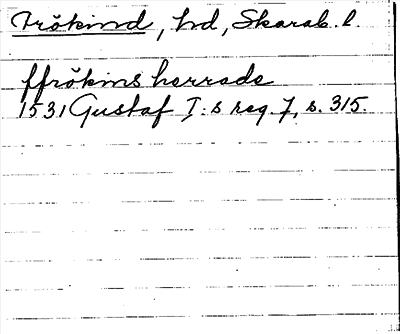 Frökind, hd, Skarab. l.
ffrökins herrade
1531 Gustaf I:s reg. 7, s. 315.